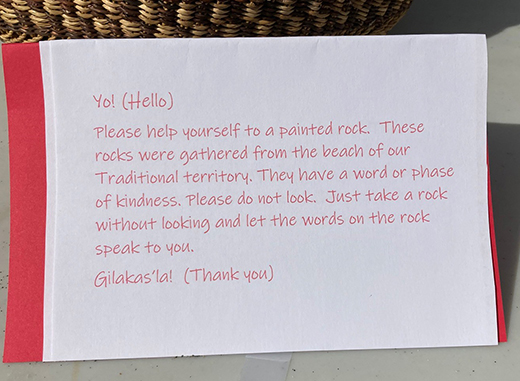 Yo! (Hello)
Please help yourself to a painted rock. These
rocks were gathered from the beach of our
Traditional territory. They have a word or phase
of kindness. Please do not look. Just take a rock
without looking and let the words on the rock
speak to you.
Gilakas'la! (Thank you)